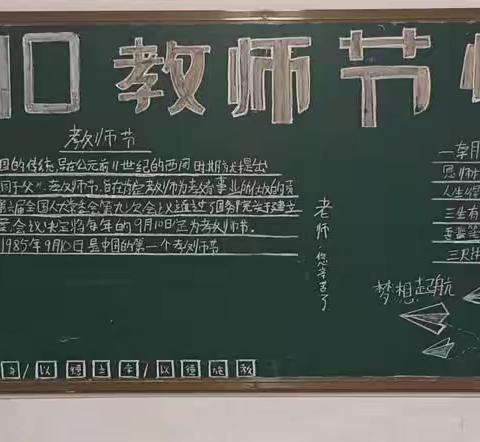 10教师节
教师节
国的传统,早在公元前11世纪的西周时期就提出
同于父". 教师节,旨在肯定教师为教育事业所做的贡
第六届全国人大常委会第九次会议通过了国务院关于建立
案,会议决定将每年的9月10日定为教师节。
1985年9月10日是中国的第一个教师节
老师,您辛苦了
一拿
恩师
人生得
三生有
三尺讲
梦想起航
以 德 立 学 / 以 德 施 教